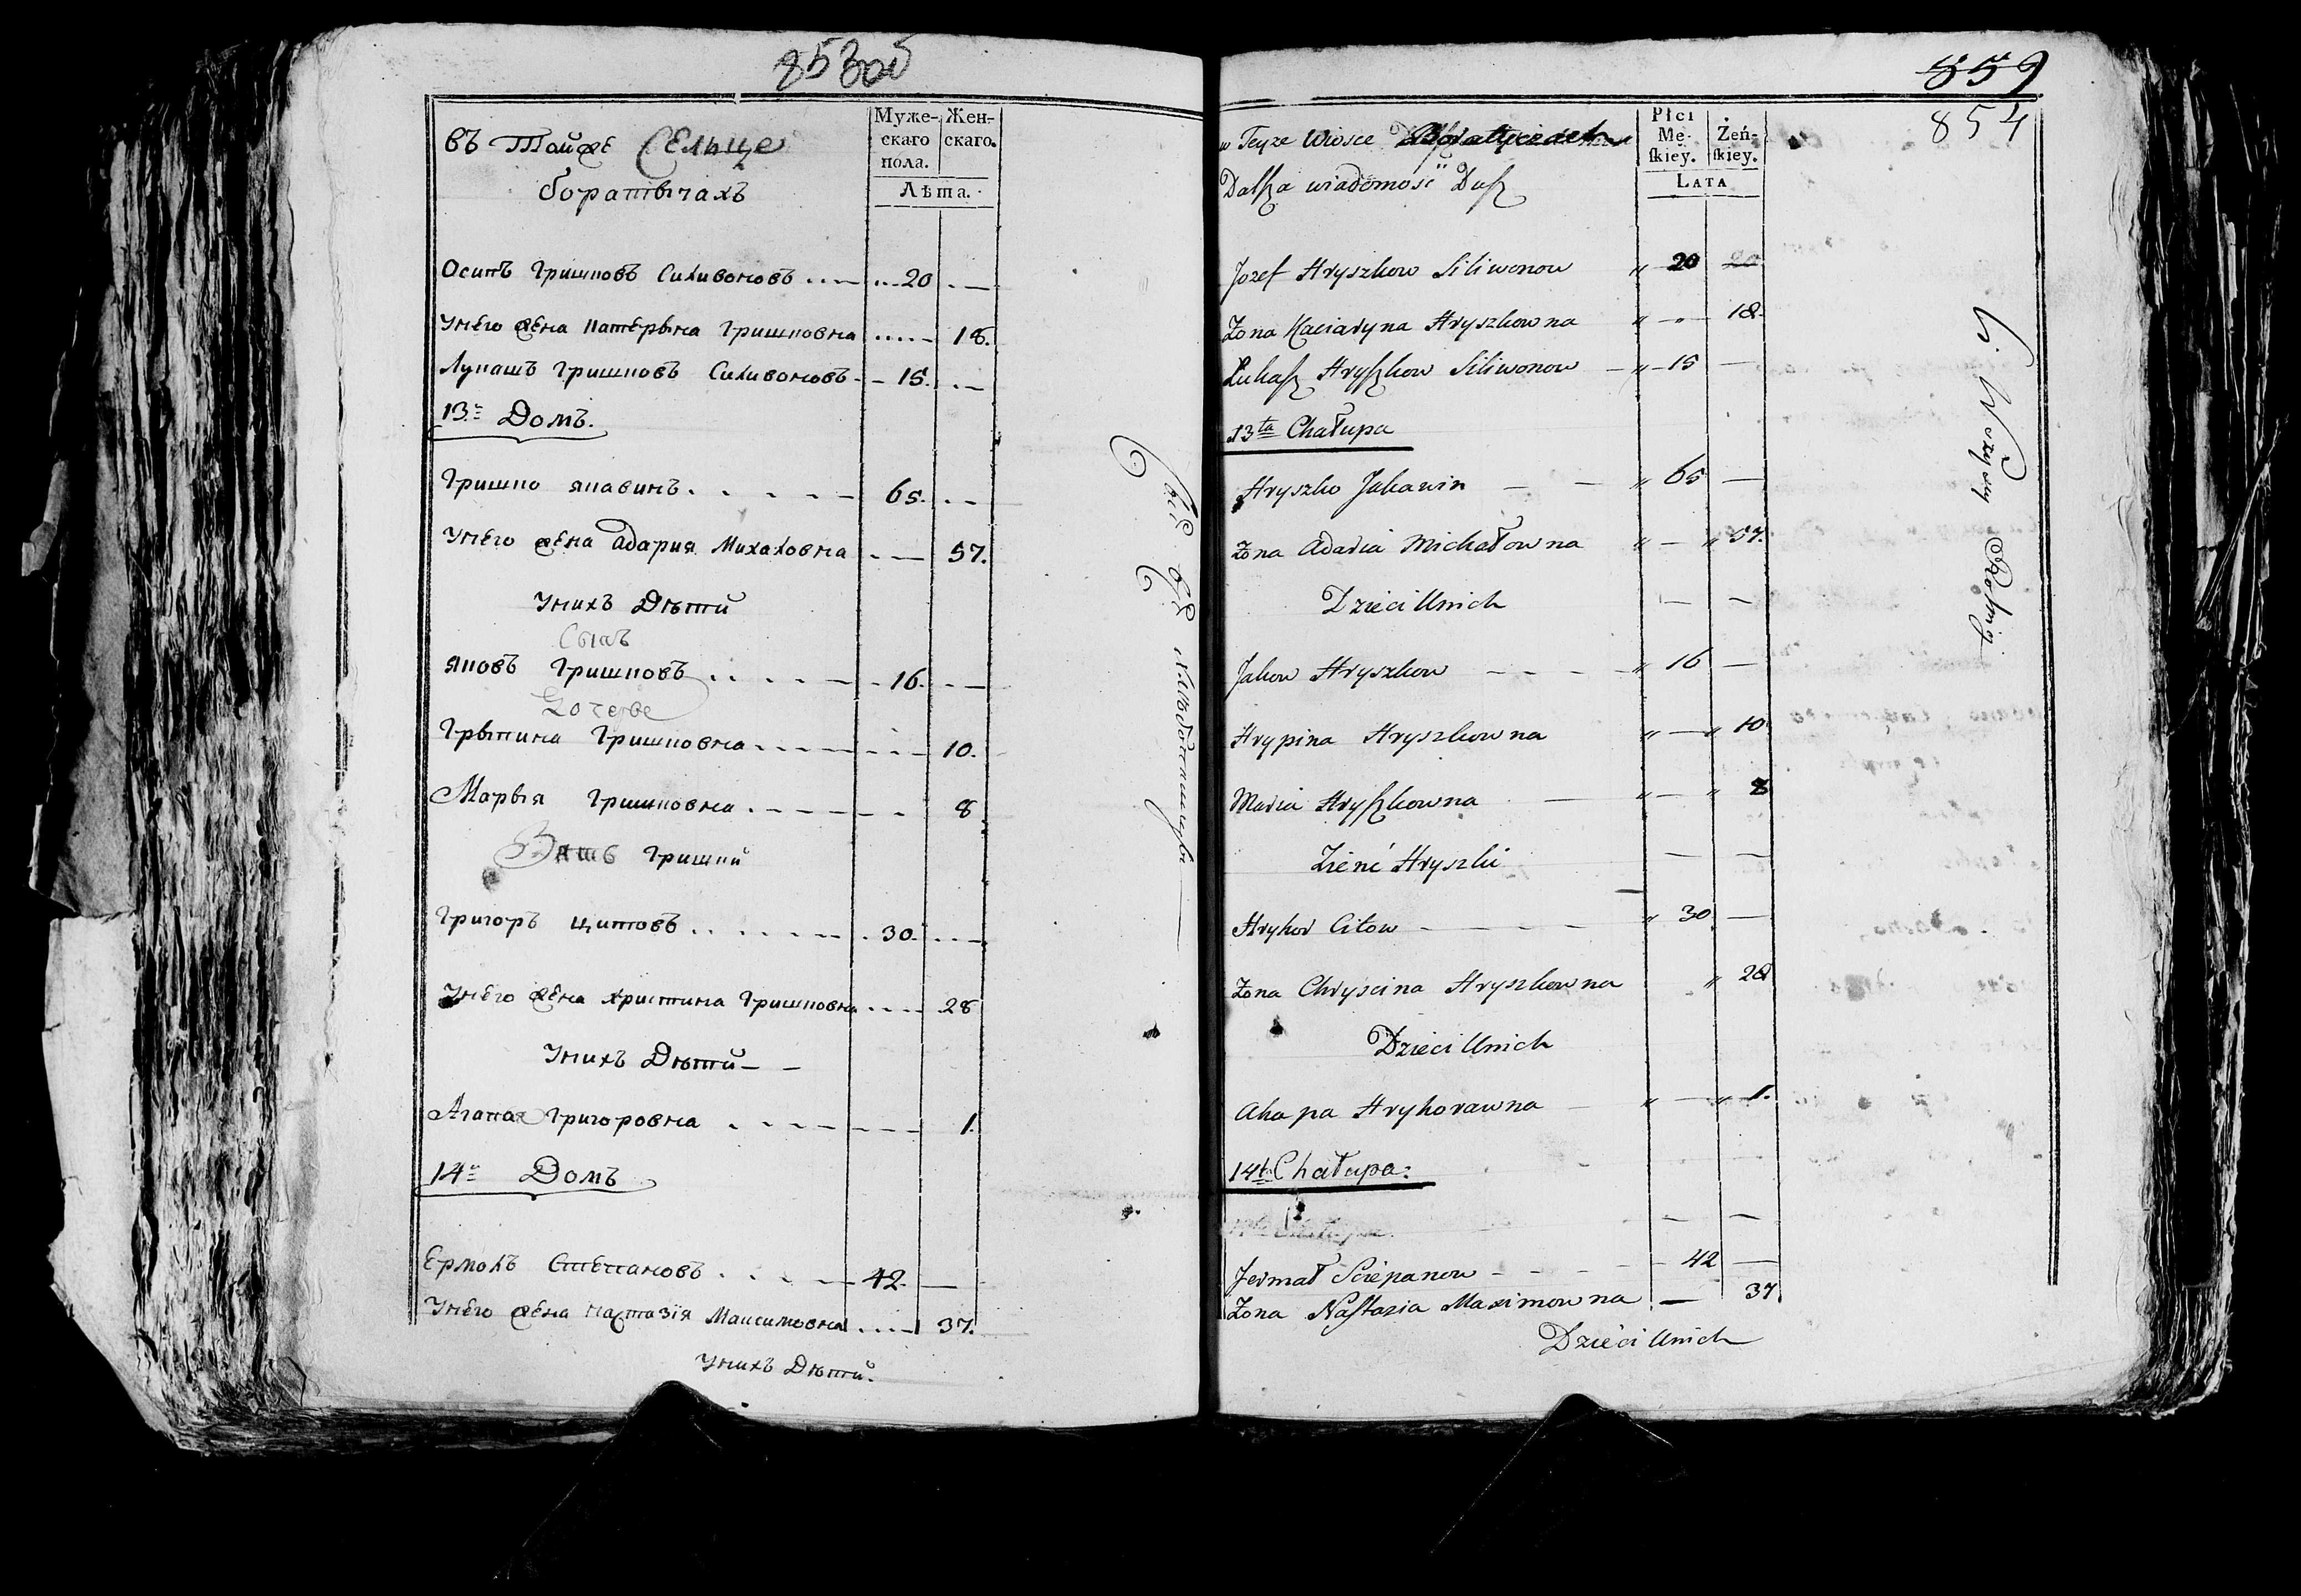 853об
Муже-
скаго
пола.
Жен-
скаго.
Лѣта.
въ Тойже Сельце
боратичахъ
Осипъ Гришковъ Силивоновъ 20
Унего жена Катерына Гришковна 18.
Лукашъ Гришковъ Силивоновъ 15.
13. Домъ.
Гришко Якавинъ 65.
Унего жена Адария Михаловна 57.
Унихъ Дѣти
Сынъ
Яковъ Гришковъ 16.
Грыпина Гришковна 10.
Марыя Гришковна 8
Зять Гришки
Григоръ Цитовъ 30.
Унего жена Христина Гришковна 28
Унихъ Дѣти
Агапа Григоровна 1.
14 Домъ
Ермолъ Степановъ 42.
Унего жена Настазія Максимовна 37.
Унихъ Дѣти.
859
854
Płci
Mę-
ſkiey.
Żeń-
ſkiey.
LATA
w Teyze Wiosce
Dalſza wiadomość Duſz
Jozef Hryszkow Siliwonow 20 20
Żona Kaciaryna Hryszkowna 18
Łukaſz Hryſzkow Siliwonow 15
13ta Chałupa
Hryszko Jakawin 65
Żona Adaria Michałowna 57.
Dzieci Unich
Jakow Hryszkow 16
Hrypina Hryszkowna 10
Maria Hryſzkowna 8
Zienć Hryszki
Hryhor Citow 30
Żona Chryscina Hryszkowna 28
Dzieci Unich
Ahapa Hryhorawna 1.
14ta Chałupa:
Jermał Sciepanow 42
Żona Naſtazia Maximowna 37
Dzieci Unich